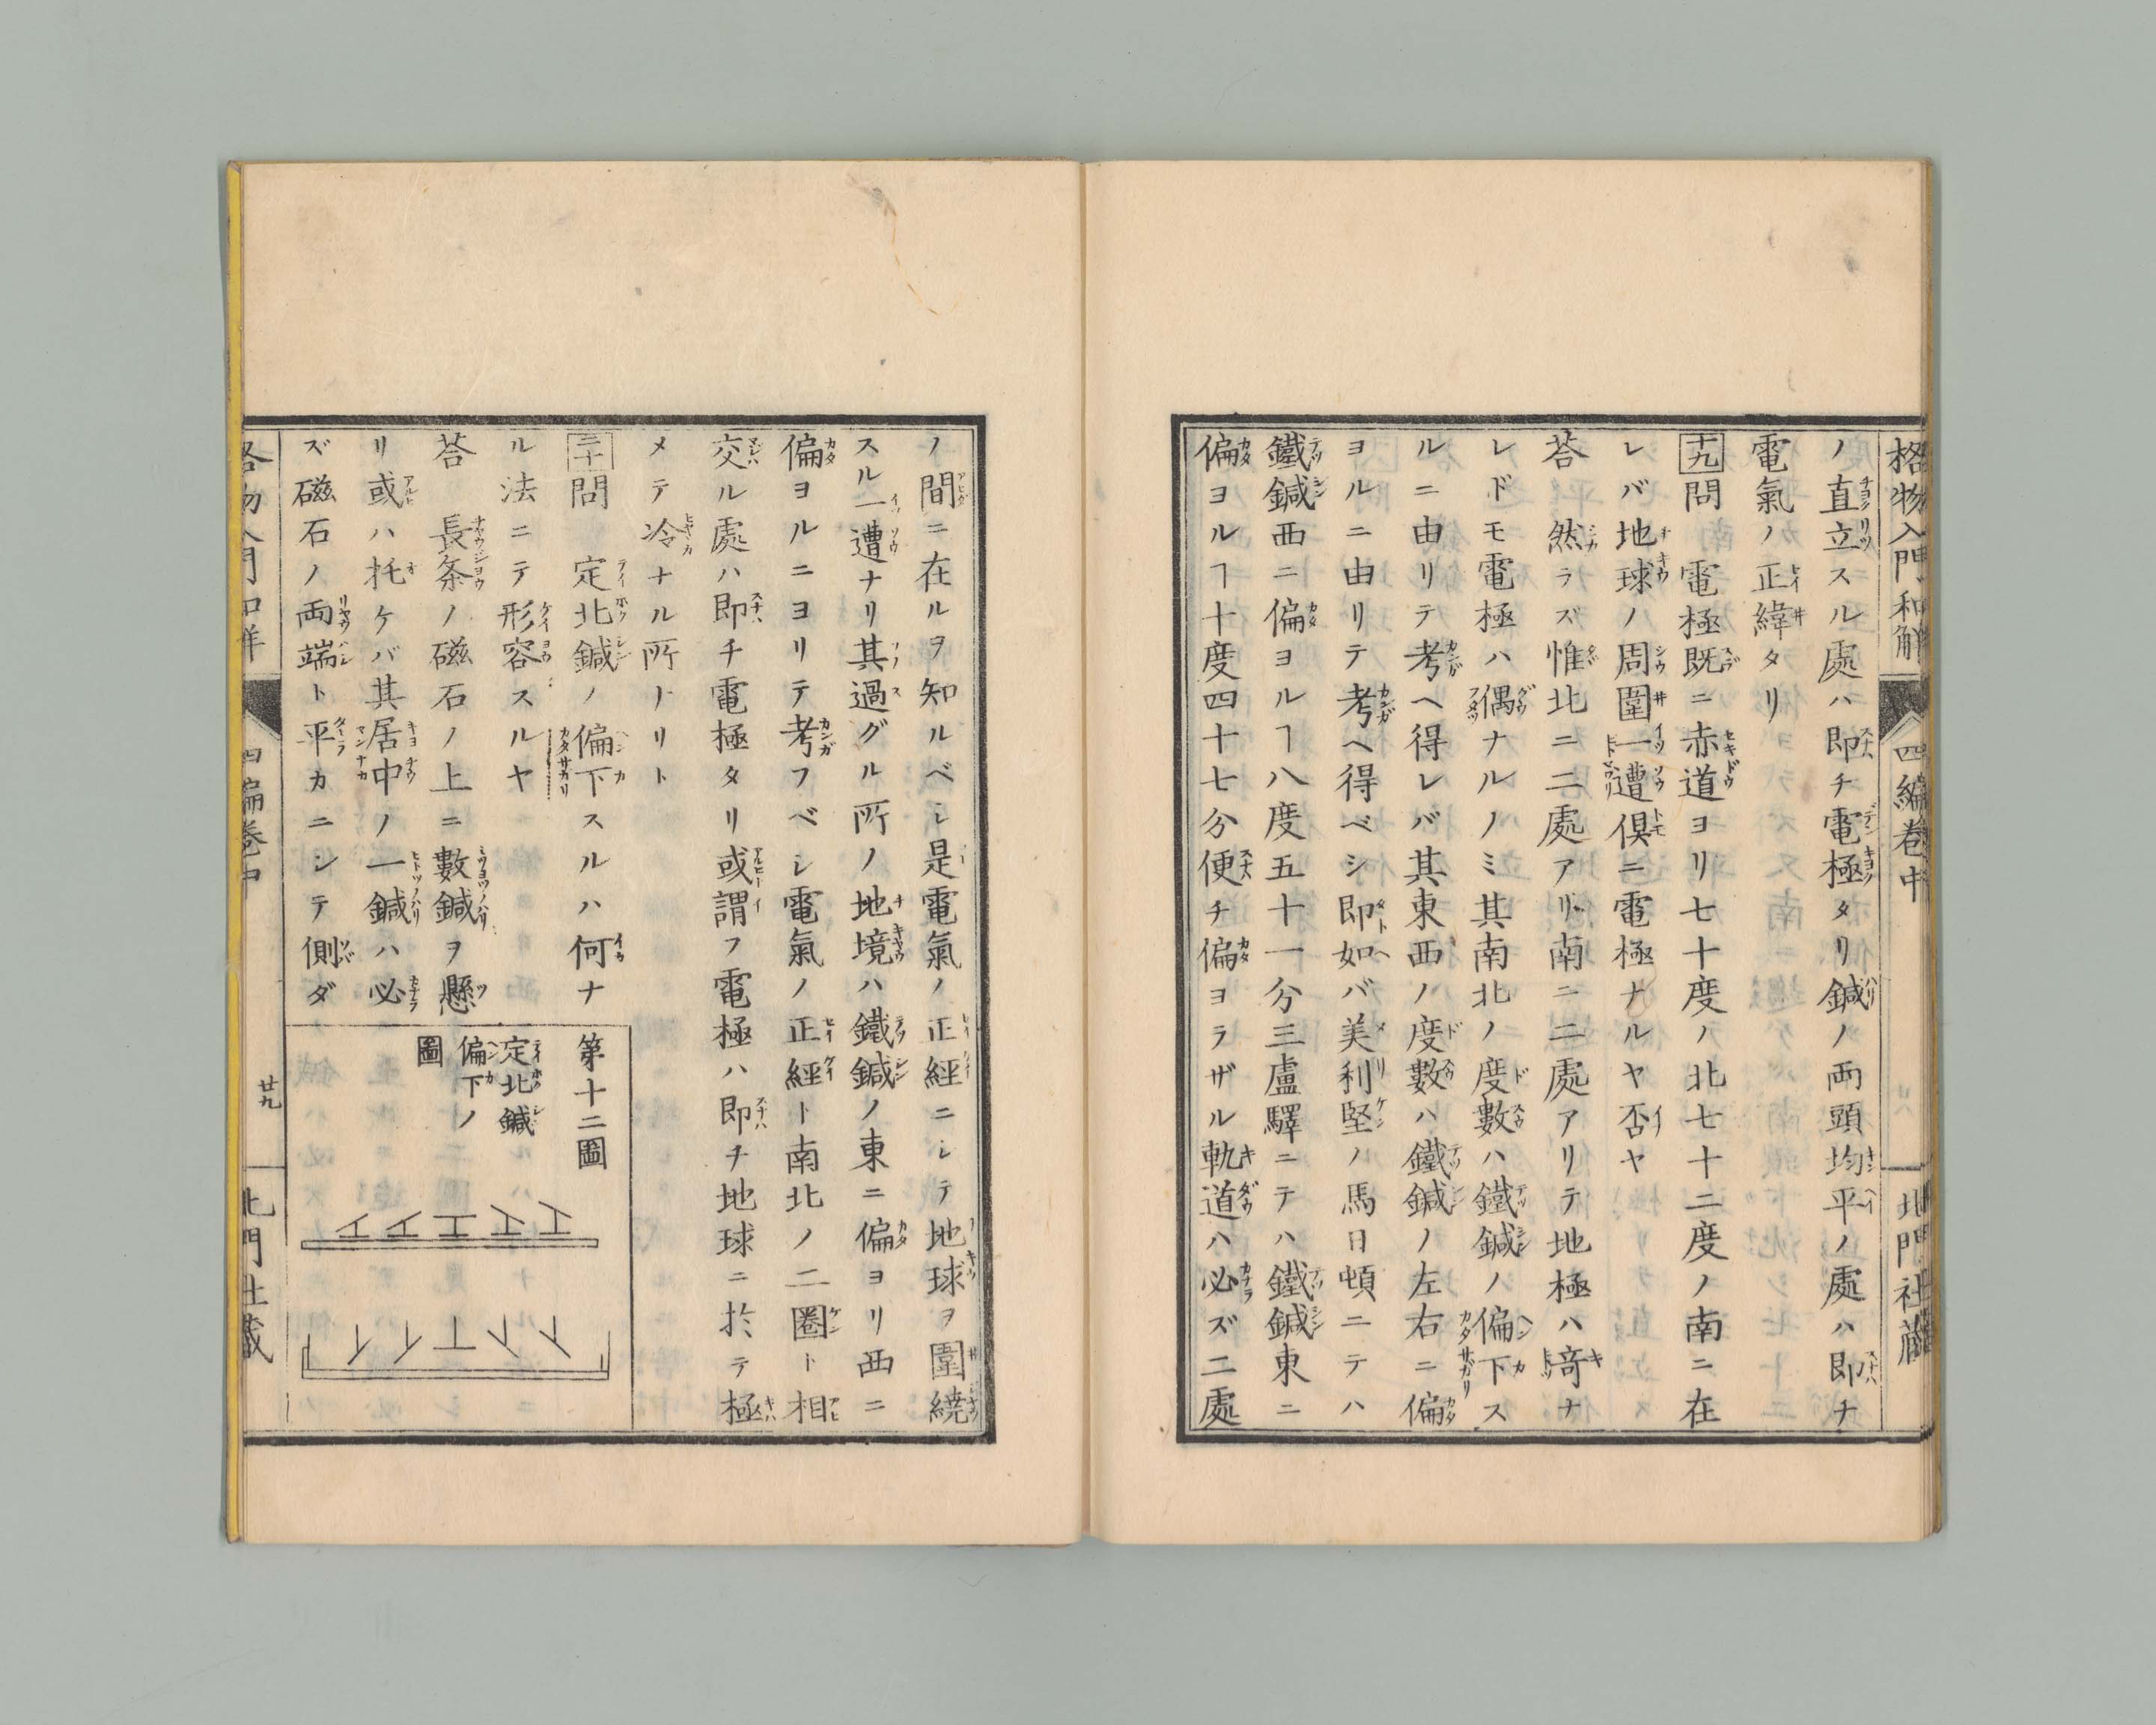 格物入門和解 四編巻中 北門社蔵
ノ直立スル處ハ即チ電極タリ鍼ノ両頭均平ノ處ハ即チ
電氣ノ正緯タリ
十九問 電極既ニ赤道ヨリ七十度ノ北七十二度ノ南ニ在
レバ地球ノ周圍一遭倶ニ電極ナルヤ否ヤ
荅 然ラズ惟北ニ二處アリ南ニ二處アリテ地極ハ竒ナ
レドモ電極ハ偶ナルノミ其南北ノ度數ハ鐵鍼ノ偏下ス
ルニ由リテ考ヘ得レバ其東西ノ度數ハ鐵鍼ノ左右ニ偏
ヨルニ由リテ考ヘ得ベシ即如バ美利堅ノ馬日頓ニテハ
鐵鍼西ニ偏ヨルヿ八度五十一分三盧驛ニテハ鐵鍼東ニ
偏ヨルヿ十度四十七分便チ偏ヨラザル軌道ハ必ズ二處
ノ間ニ在ルヲ知ルベシ是電氣ノ正經ニシテ地球ヲ圍繞
スル一遭ナリ其過グル所ノ地境ハ鐵鍼ノ東ニ偏ヨリ西ニ
偏ヨルニヨリテ考フベシ電氣ノ正經ト南北ノ二圈ト相
交ル處ハ即チ電極タリ或謂フ電極ハ即チ地球ニ於テ極
メテ冷ナル所ナリト
二十問 定北鍼ノ偏下スルハ何ナ
ル法ニテ形容スルヤ
荅 長条ノ磁石ノ上ニ數鍼ヲ懸
リ或ハ托ケバ其居中ノ一鍼ハ必
ズ磁石ノ両端ト平カニシテ側ダ
第十二圖
定北鍼
偏下ノ
圖
格物入門和解 四編巻中 廿九 北門社蔵